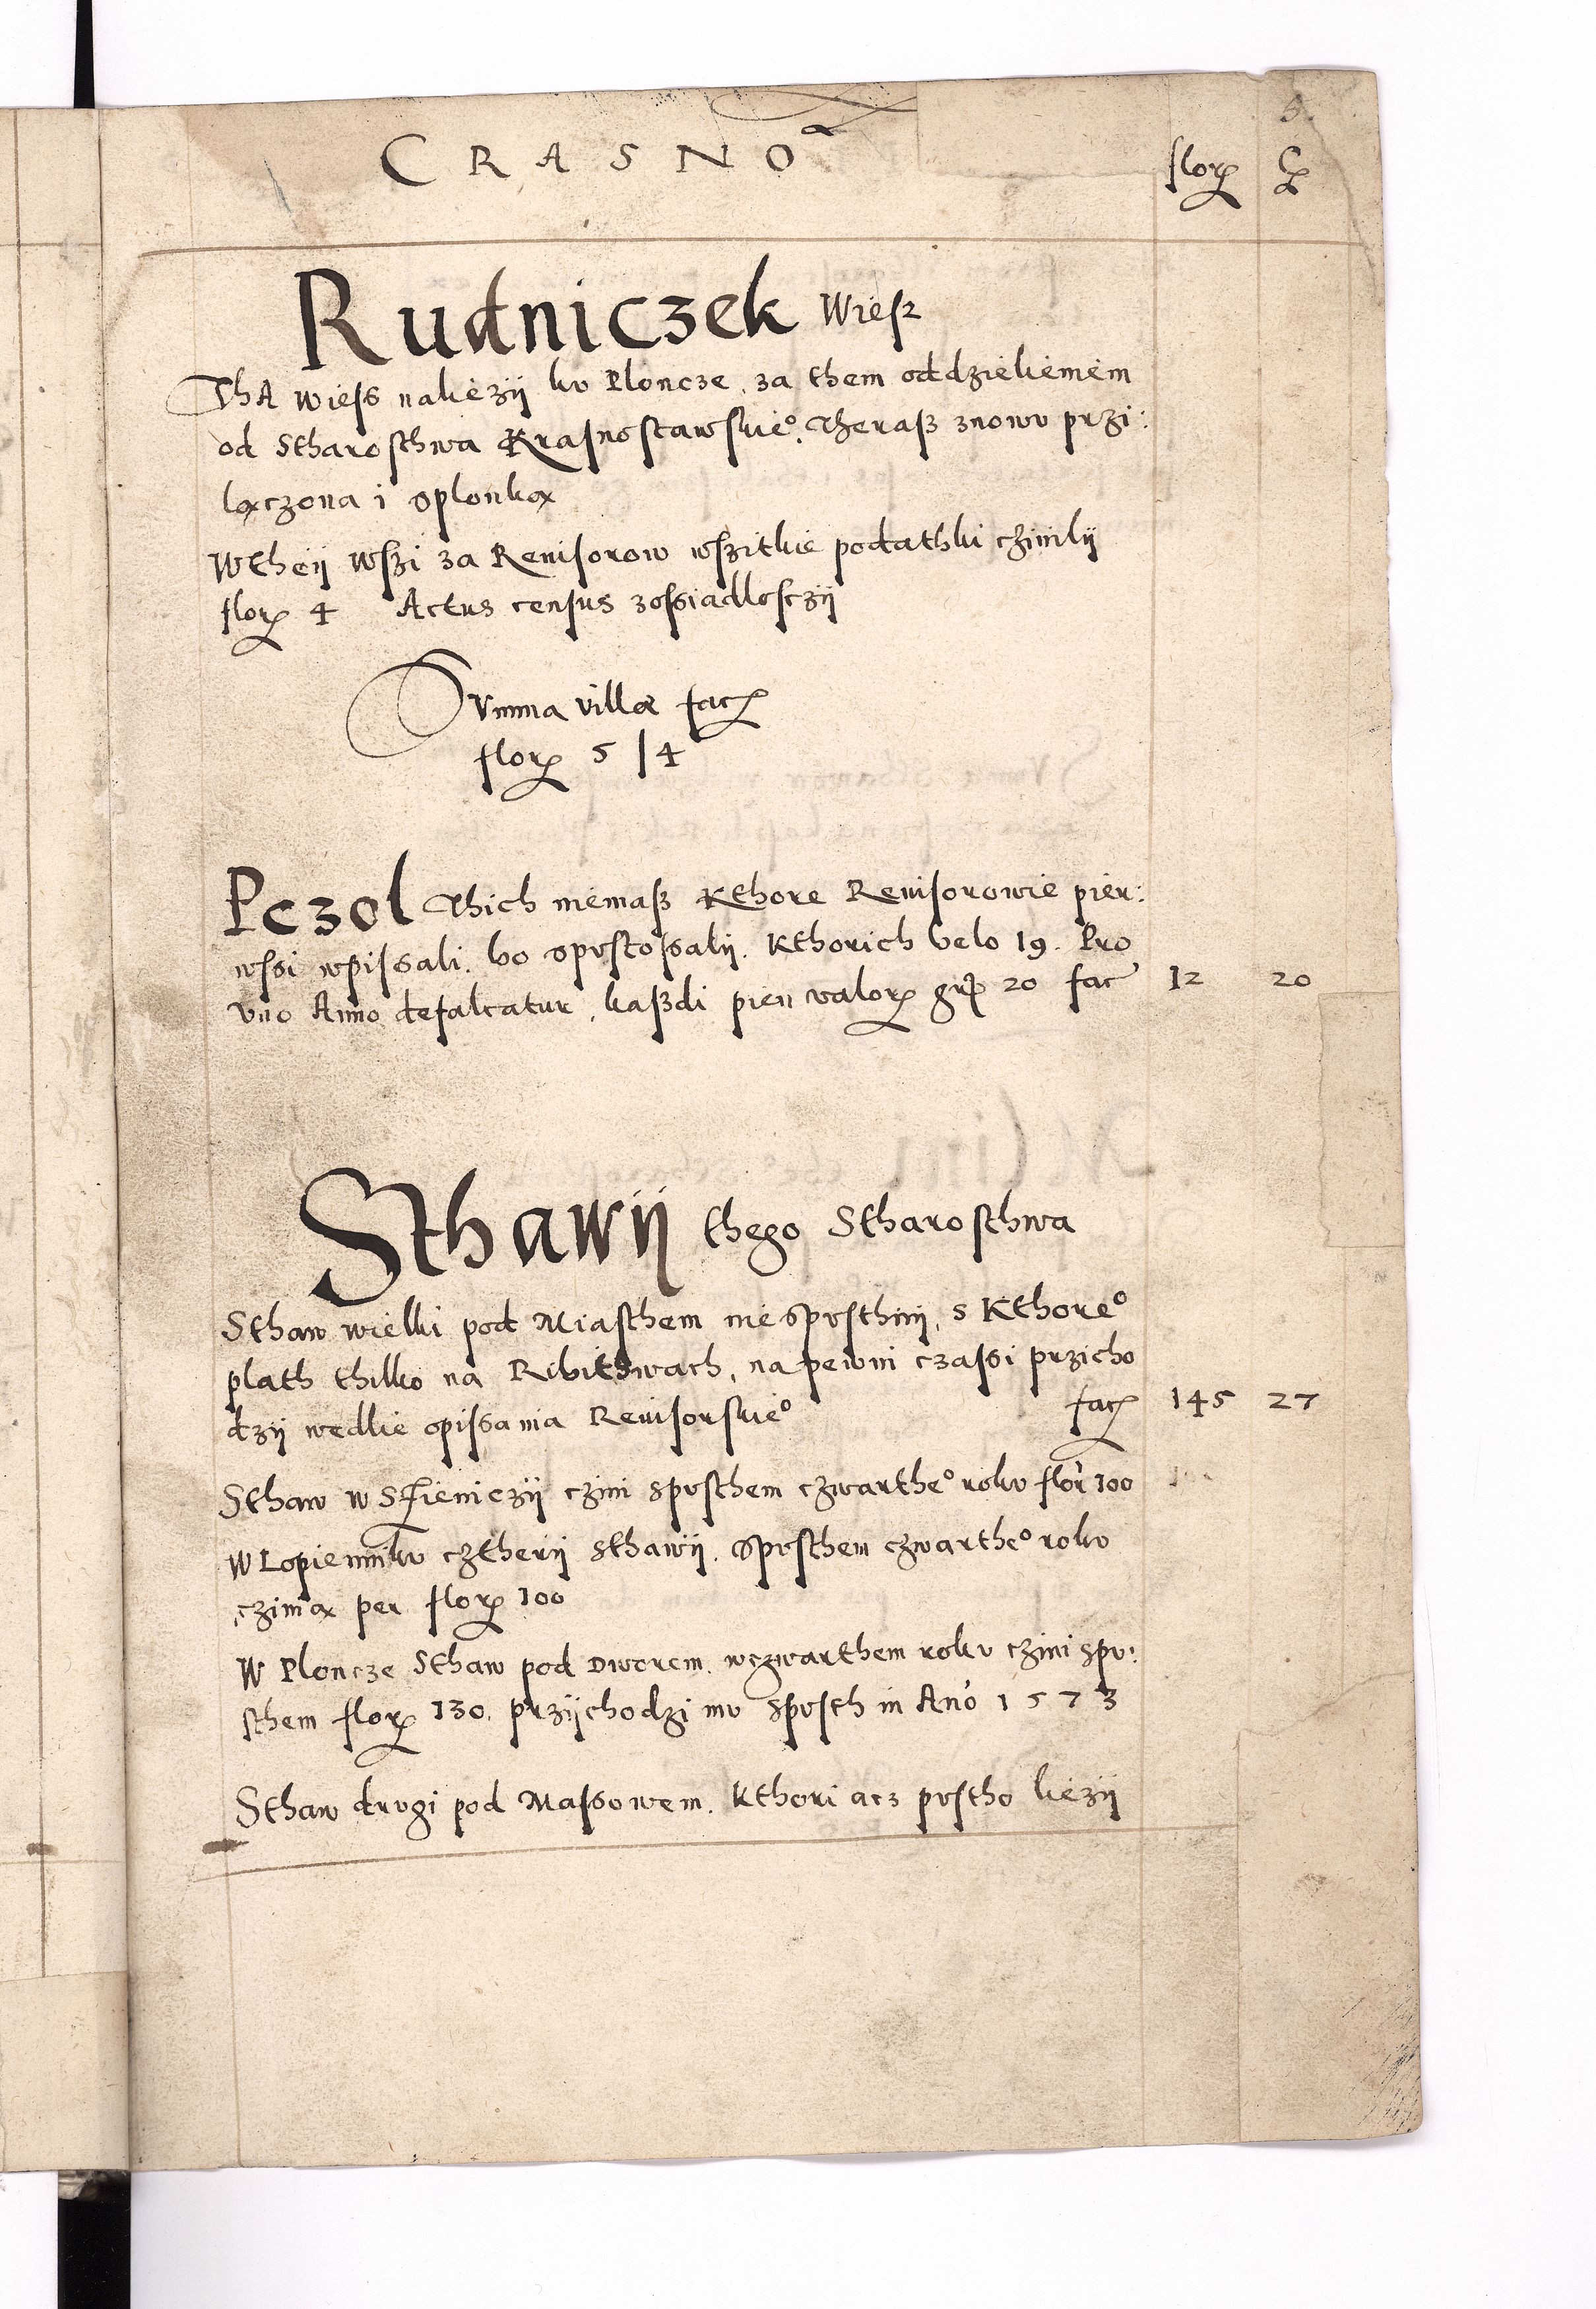 5.
CRASNO
florꝭ gꝭ
Rudniczek Wiesz
ThA wiess naliezÿ ku Ploncze, za them oddzieliemem
od Stharosthwa Krasnostawskieº. Theraß znowu przi:
lączona i oplonką
Wtheÿ Wszi za Reuisorow wszitkie podathki cziinilÿ
florꝭ 4 Actus census zossiadlosczÿ
Summa villæ facꝭ
florꝭ 5 | 4
Pczol Thich niemaß Kthore Reuisorowie pier:
wssi wpissali. bo opustossalÿ. Kthorich belo 19. Pro
vno Anno defalcatur, kaßdi pien valorꝭ grꝭ 20 fac 12 20
Sthawÿ thego Stharosthwa
Sthaw wielki pod Miasthem nie spusthnÿ, s Kthoreº
plath thilko na Ribitswach, na pewni czassi przicho
dzÿ wedlie opissania Reuisorskieº facꝭ 145 27
Sthaw w Sieniczÿ czini spusthem czwartheº roku flor 100
W Lopienniku cztherÿ sthawÿ. Spusthem czwartheº roku
czinią per florꝭ 100
W Ploncze Sthaw pod Dworem. wczwarthem roku czini spu:
sthem florꝭ 130. przÿchodzi mu spusth in Ano 1573
Sthaw drugi pod Massowem. Kthori acz pustho liezÿ